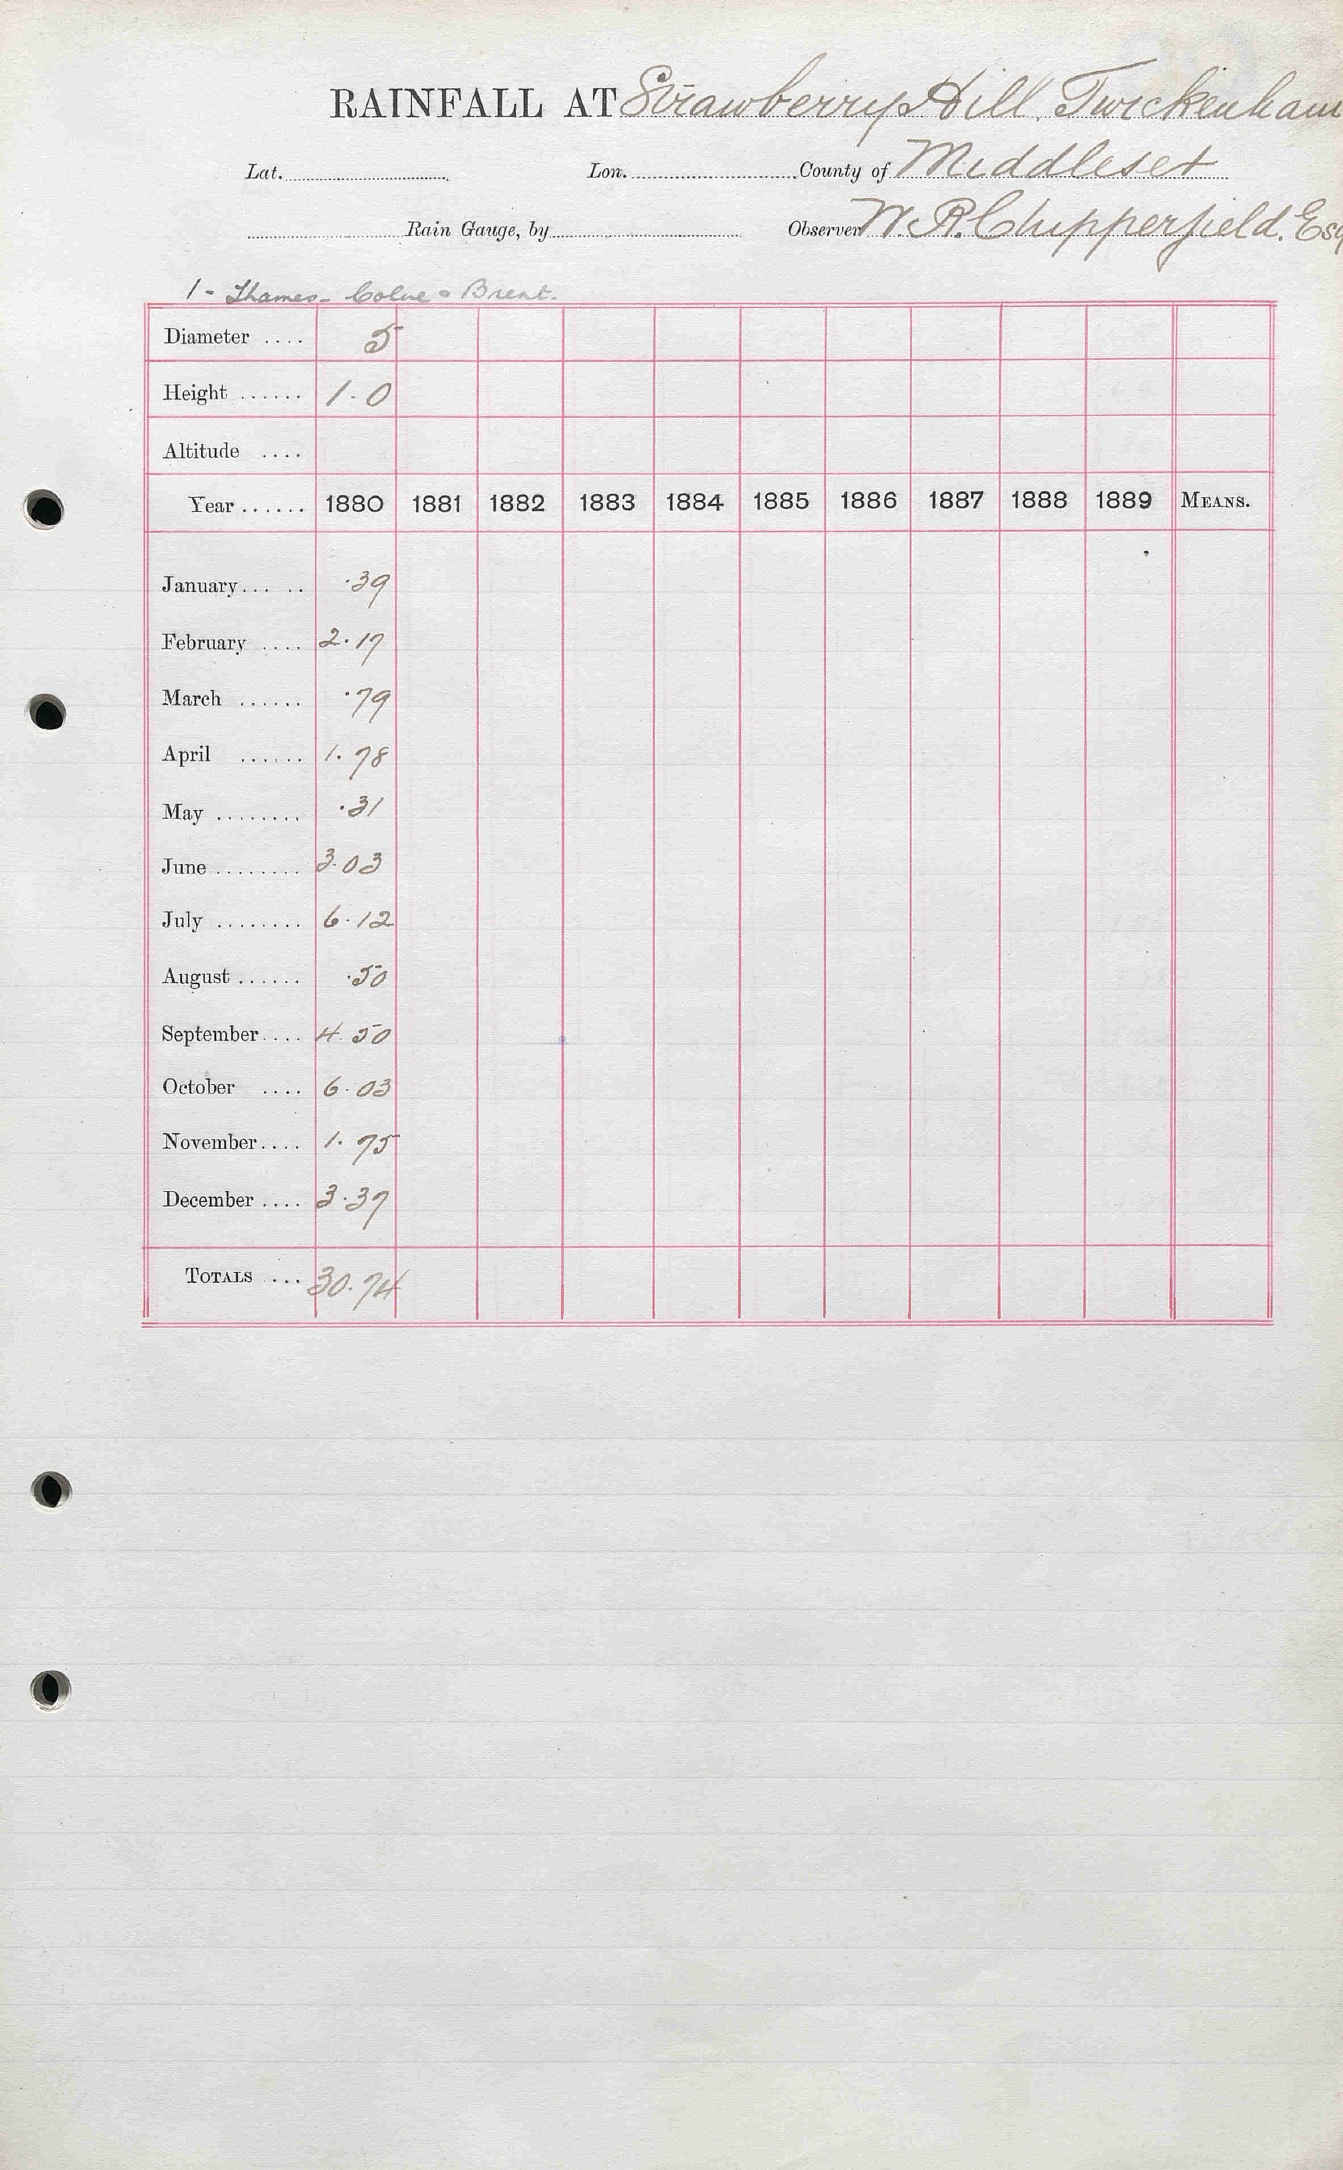 RAINFALL AT Strawberry Hill. Twickenham
Lat. Lon. County of Middlesex
Rain Gauge, by Observer W. R. Chipperfield. Esq
1 - Thames - Colne & Brent.
Diameter .... 5
Height ...... 1.0
Altitude ....
Year ...... 1880 1881 1882 1883 1884 1885 1886 1887 1888 1889 MEANS.
January... .. .39
February .... 2.17
March ...... .79
April ...... 1.78
May ........ .31
June ........ 3.03
July ........ 6.12
August ...... .50
September .... 4.50
October .... 6.03
November .... 1.75
December .... 3.37
TOTALS .... 30.74